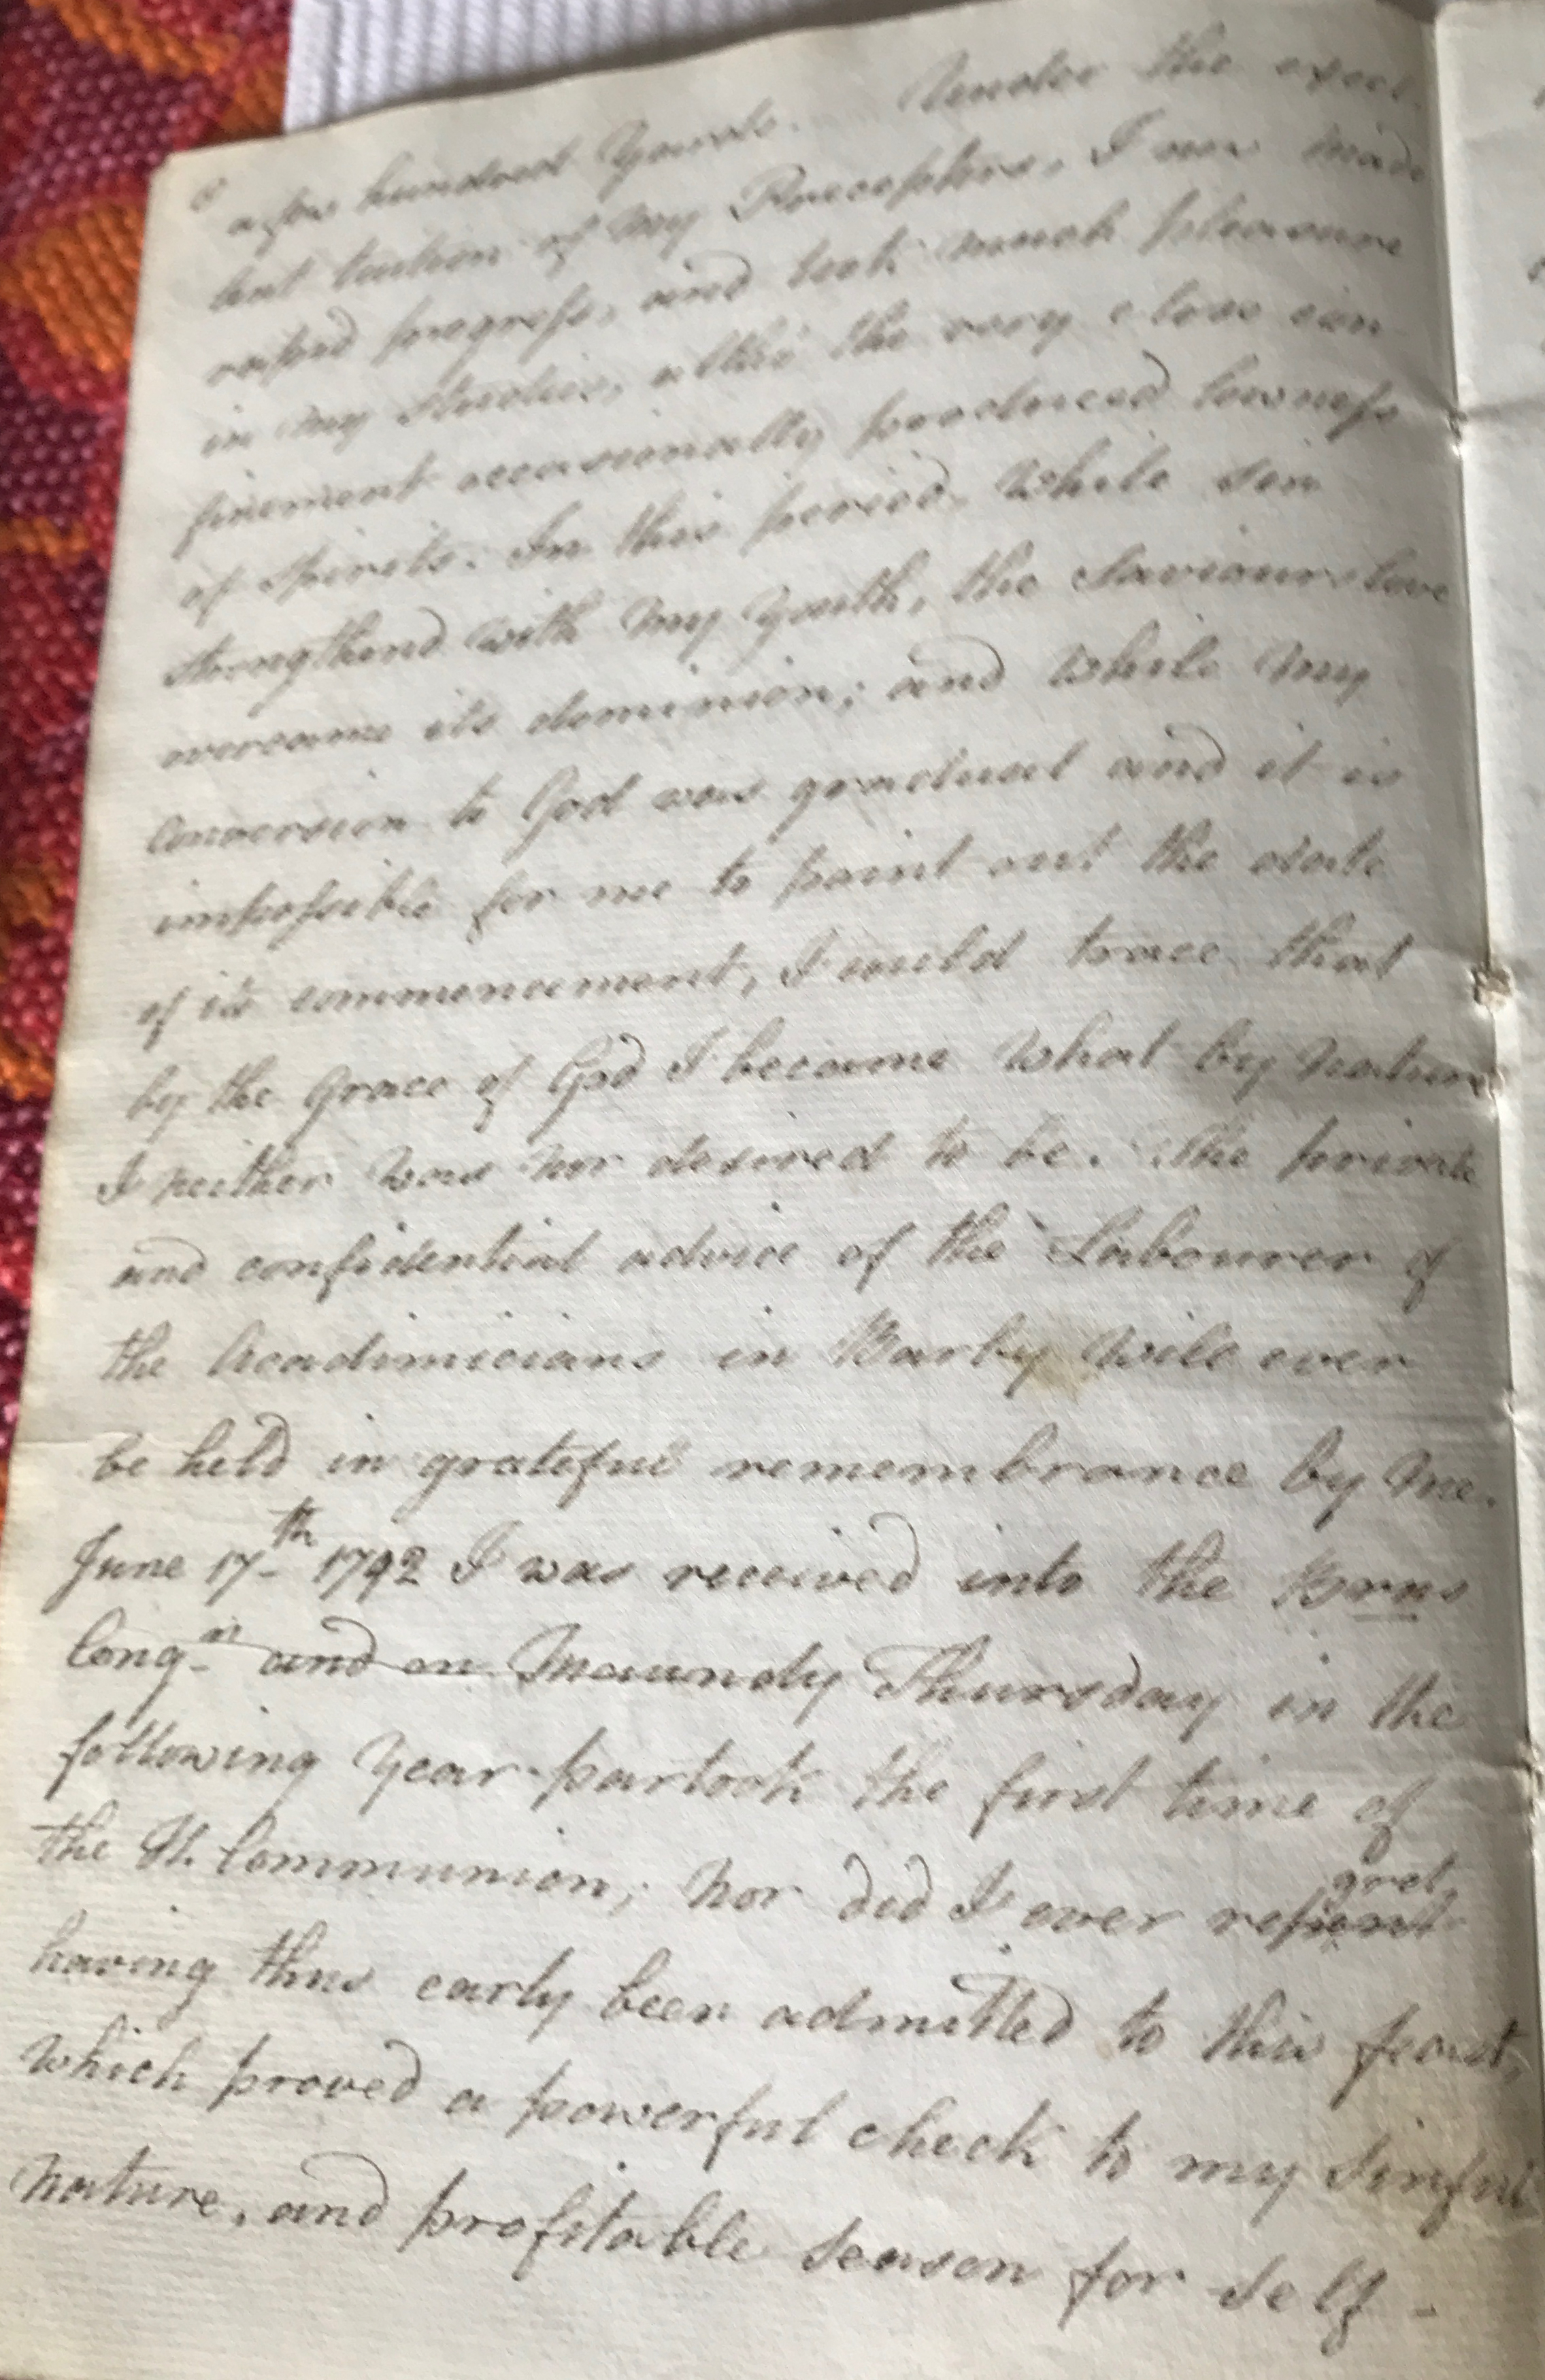 6
a few hundred Yards. Under the excel-
lent tuition of my Preceptors, I soon made
rapid progress, and took much pleasure
in my studies, altho' the very close con
finement occasionally produced lowness
of spirits. In this period, while sin
strengthend with my Youth, the Saviours love
overcame its dominion; and while my
conversion to God was gradual and it is
impossible for me to point out the date
of its commencement, I could trace that
by the Grace of God I became what by nature
I neither was nor desired to be. The private
and confidential advice of the Labourer of
the Academicians in Barby will ever
be held in grateful remembrance by me.
June 17th 1792 I was received into the Brns
Congn and on Maundy Thursday in the
following Year partook the first time of
the H. Communion; nor did I ever repent
gret,
having thus early been admitted to this feast,
which proved a powerful check to my sinful
nature, and profitable season for self-